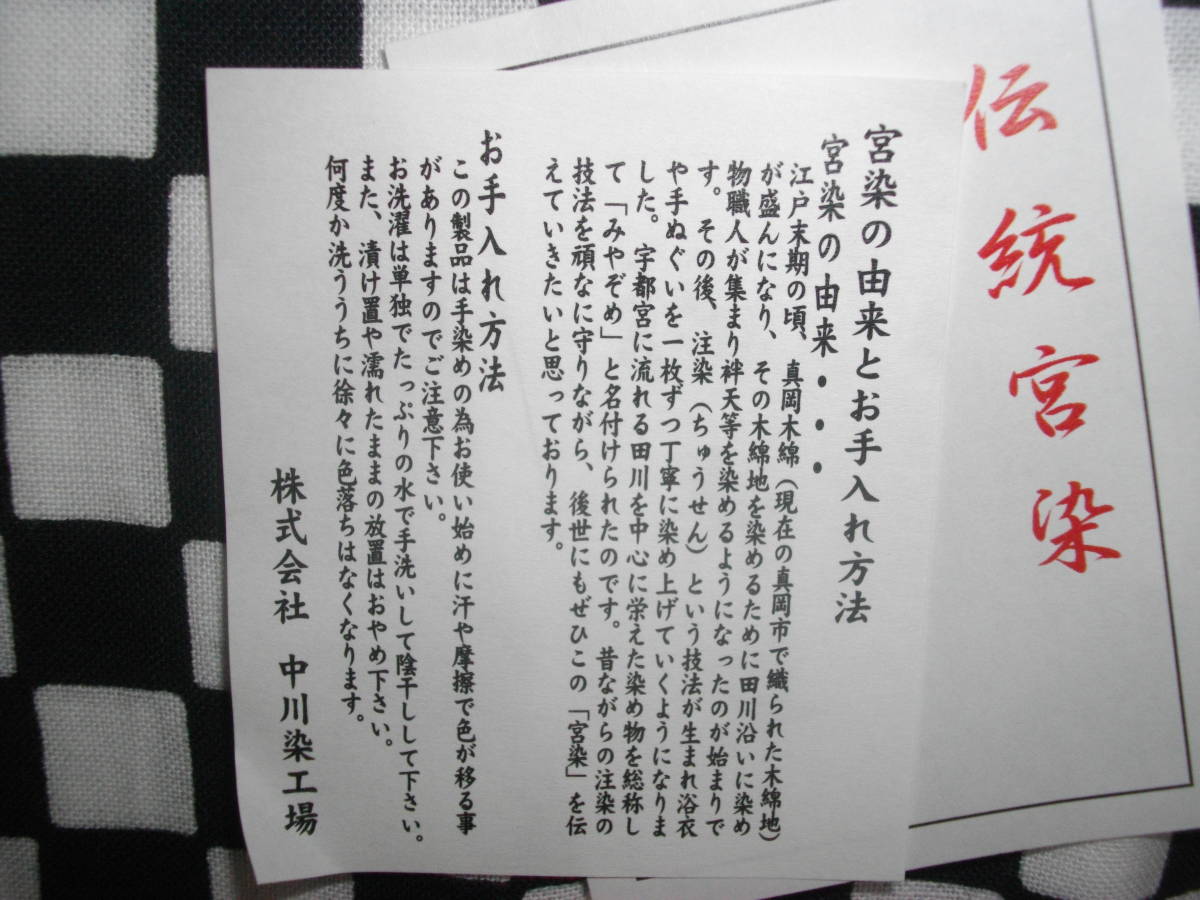 伝統宮染
宮染の由来とお手入れ方法
宮染の由来・・・
江戸末期の頃、真岡木綿（現在の真岡市で織られた木綿地）
が盛んになり、その木綿地を染めるために田川沿いに染め
物職人が集まり袢天等を染めるようになったのが始まりで
す。その後、注染（ちゅうせん）という技法が生まれ浴衣
や手ぬぐいを一枚ずつ丁寧に染め上げていくようになりま
した。宇都宮に流れる田川を中心に栄えた染め物を総称し
て「みやぞめ」と名付けられたのです。昔ながらの注染の
技法を頑なに守りながら、後世にもぜひこの「宮染」を伝
えていきたいと思っております。
お手入れ方法
この製品は手染めの為お使い始めに汗や摩擦で色が移る事
がありますのでご注意下さい。
お洗濯は単独でたっぷりの水で手洗いして陰干しして下さい。
また、漬け置や濡れたままの放置はおやめ下さい。
何度か洗ううちに徐々に色落ちはなくなります。
株式会社 中川染工場